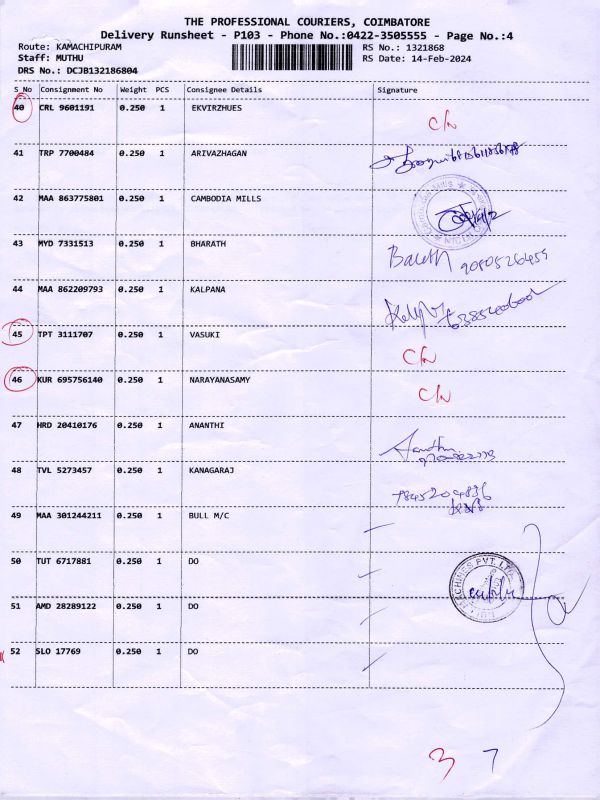 THE PROFESSIONAL COURIERS, COIMBATORE
Delivery Runsheet - P103 - Phone No.:0422-3505555 - Page No.:4
Route: KAMACHIPURAM RS No.: 1321868
Staff: MUTHU RS Date: 14-Feb-2024
DRS No.: DCJB132186804
S_No Consignment No Weight PCS Consignee Details Signature
40 CRL 9601191 0.250 1 EKVIRZHUES
41 TRP 7700484 0.250 1 ARIVAZHAGAN
42 MAA 863775801 0.250 1 CAMBODIA MILLS
43 MYD 7331513 0.250 1 BHARATH Barath
44 MAA 862209793 0.250 1 KALPANA
45 TPT 3111707 0.250 1 VASUKI
46 KUR 695756140 0.250 1 NARAYANASAMY
47 HRD 20410176 0.250 1 ANANTHI Ananthi
48 TVL 5273457 0.250 1 KANAGARAJ 7845204836
49 MAA 301244211 0.250 1 BULL M/C
50 TUT 6717881 0.250 1 DO
51 AMD 28289122 0.250 1 DO
52 SLO 17769 0.250 1 DO
MACHINES PVT. LTD.
3 7